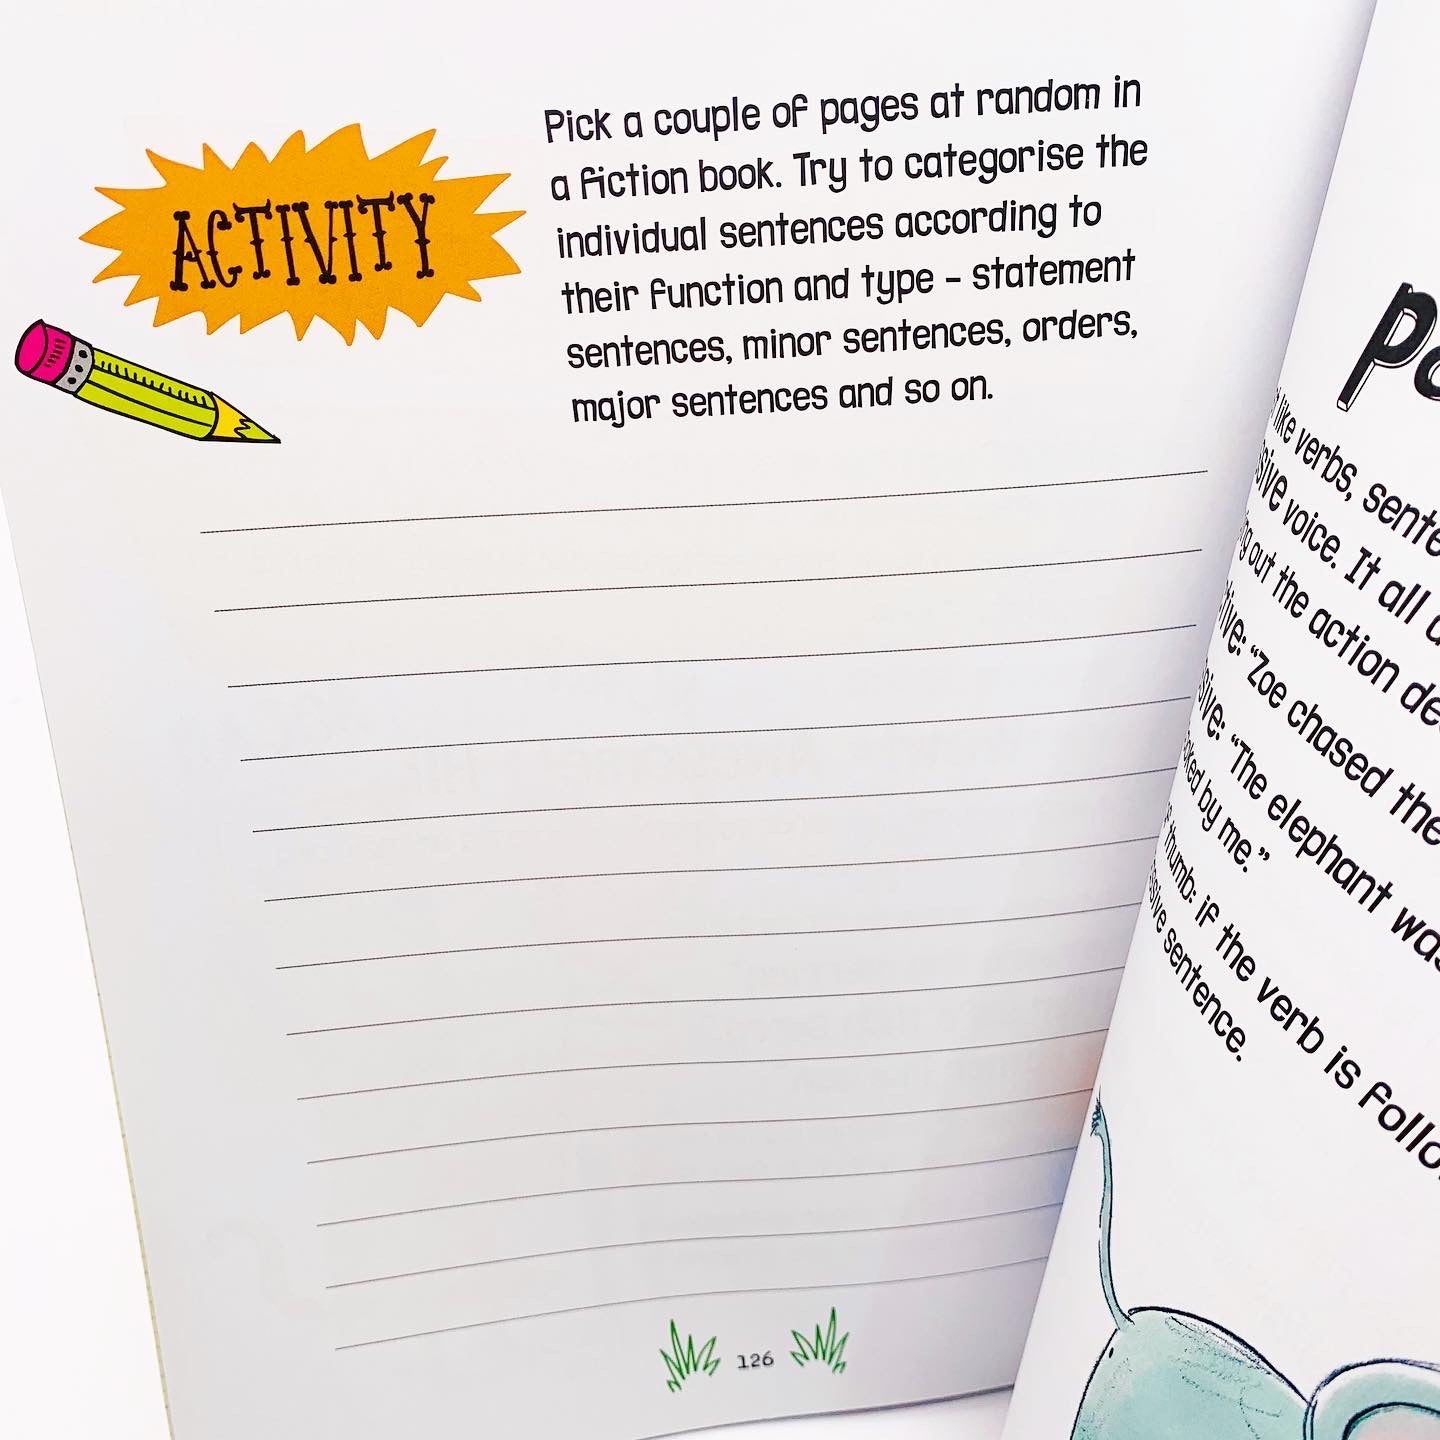 ACTIVITY
Pick a couple of pages at random in
a fiction book. Try to categorise the
individual sentences according to
their function and type – statement
sentences, minor sentences, orders,
major sentences and so on.
126
like verbs,
voice. It all
out the action
"Zoe chased the
"The elephant
by me."
thumb: if the verb is
sentence.